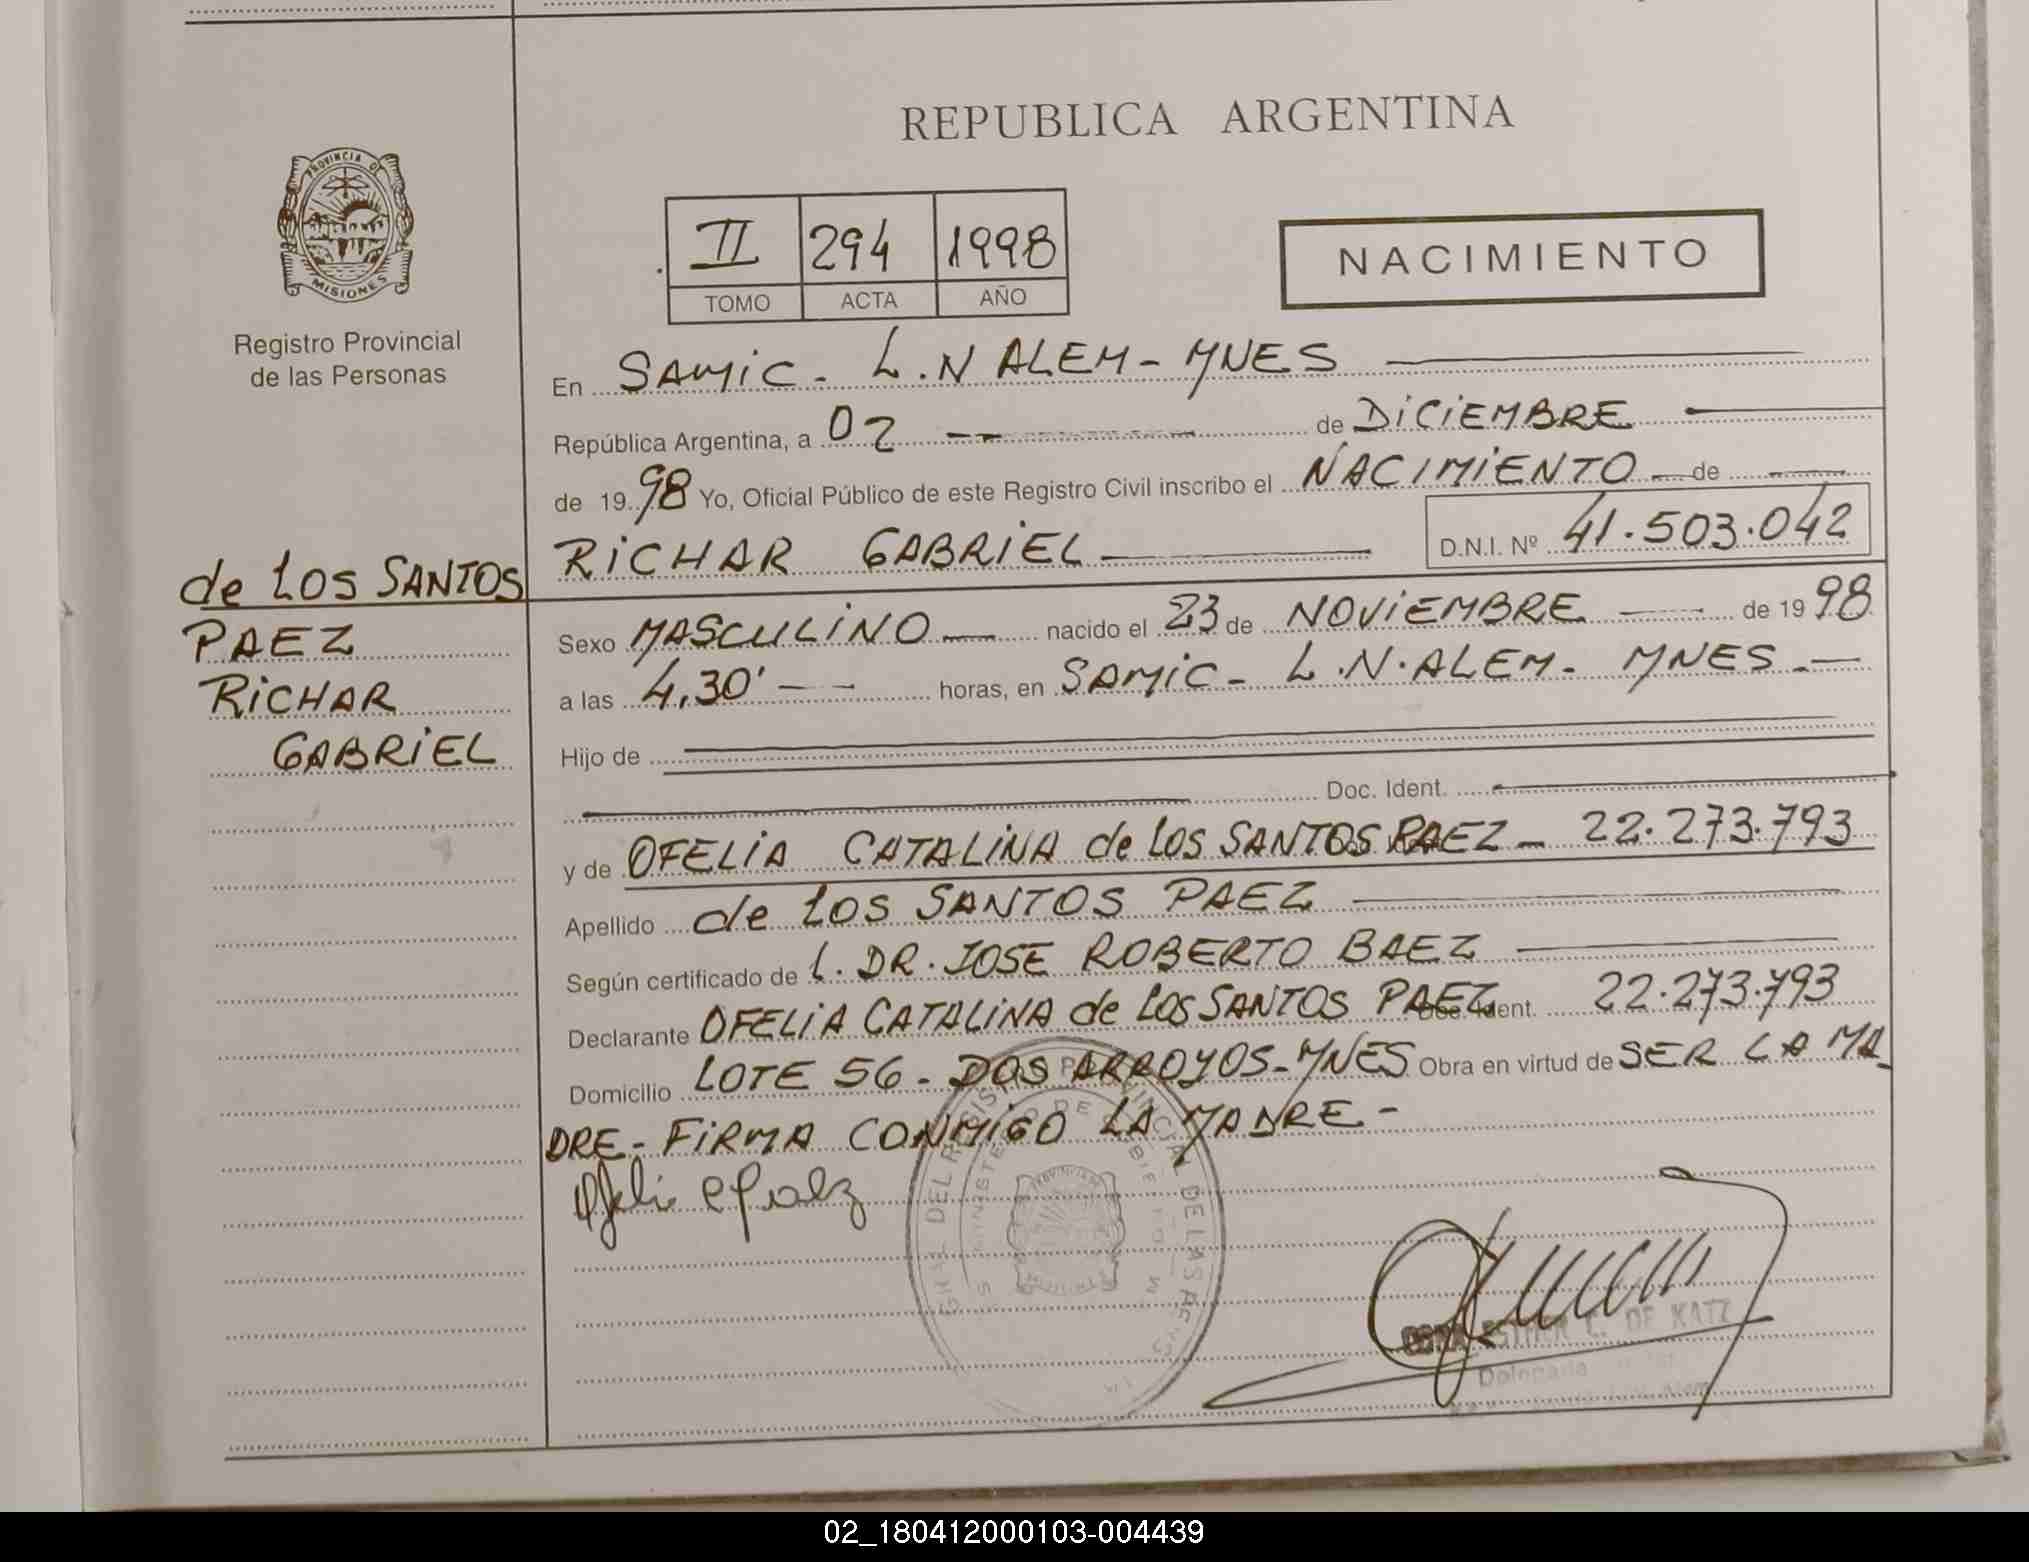 REPUBLICA ARGENTINA
PROVINCIA DE
MISIONES
Registro Provincial
de las Personas
II 294 1998
TOMO ACTA AÑO
NACIMIENTO
En SAMIC - L.N ALEM - MNES
República Argentina, a 02 de DICIEMBRE
de 19 98 Yo, Oficial Público de este Registro Civil inscribo el NACIMIENTO de
RICHAR GABRIEL D.N.I. Nº 41.503.042
de LOS SANTOS
PAEZ
RICHAR
GABRIEL
Sexo MASCULINO nacido el 23 de NOVIEMBRE de 19 98
a las 4,30' horas, en SAMIC - L.N.ALEM - MNES -
Hijo de
Doc. Ident.
y de OFELIA CATALINA de LOS SANTOS PAEZ - 22.273.793
Apellido de LOS SANTOS PAEZ
Según certificado de L. DR. JOSE ROBERTO BAEZ
Declarante OFELIA CATALINA de LOS SANTOS PAEZ Doc. Ident. 22.273.793
Domicilio LOTE 56 - DOS ARROYOS - MNES Obra en virtud de SER LA MA-
DRE - FIRMA CONMIGO LA MADRE -
ESTHER C. DE KATZ
02_180412000103-004439